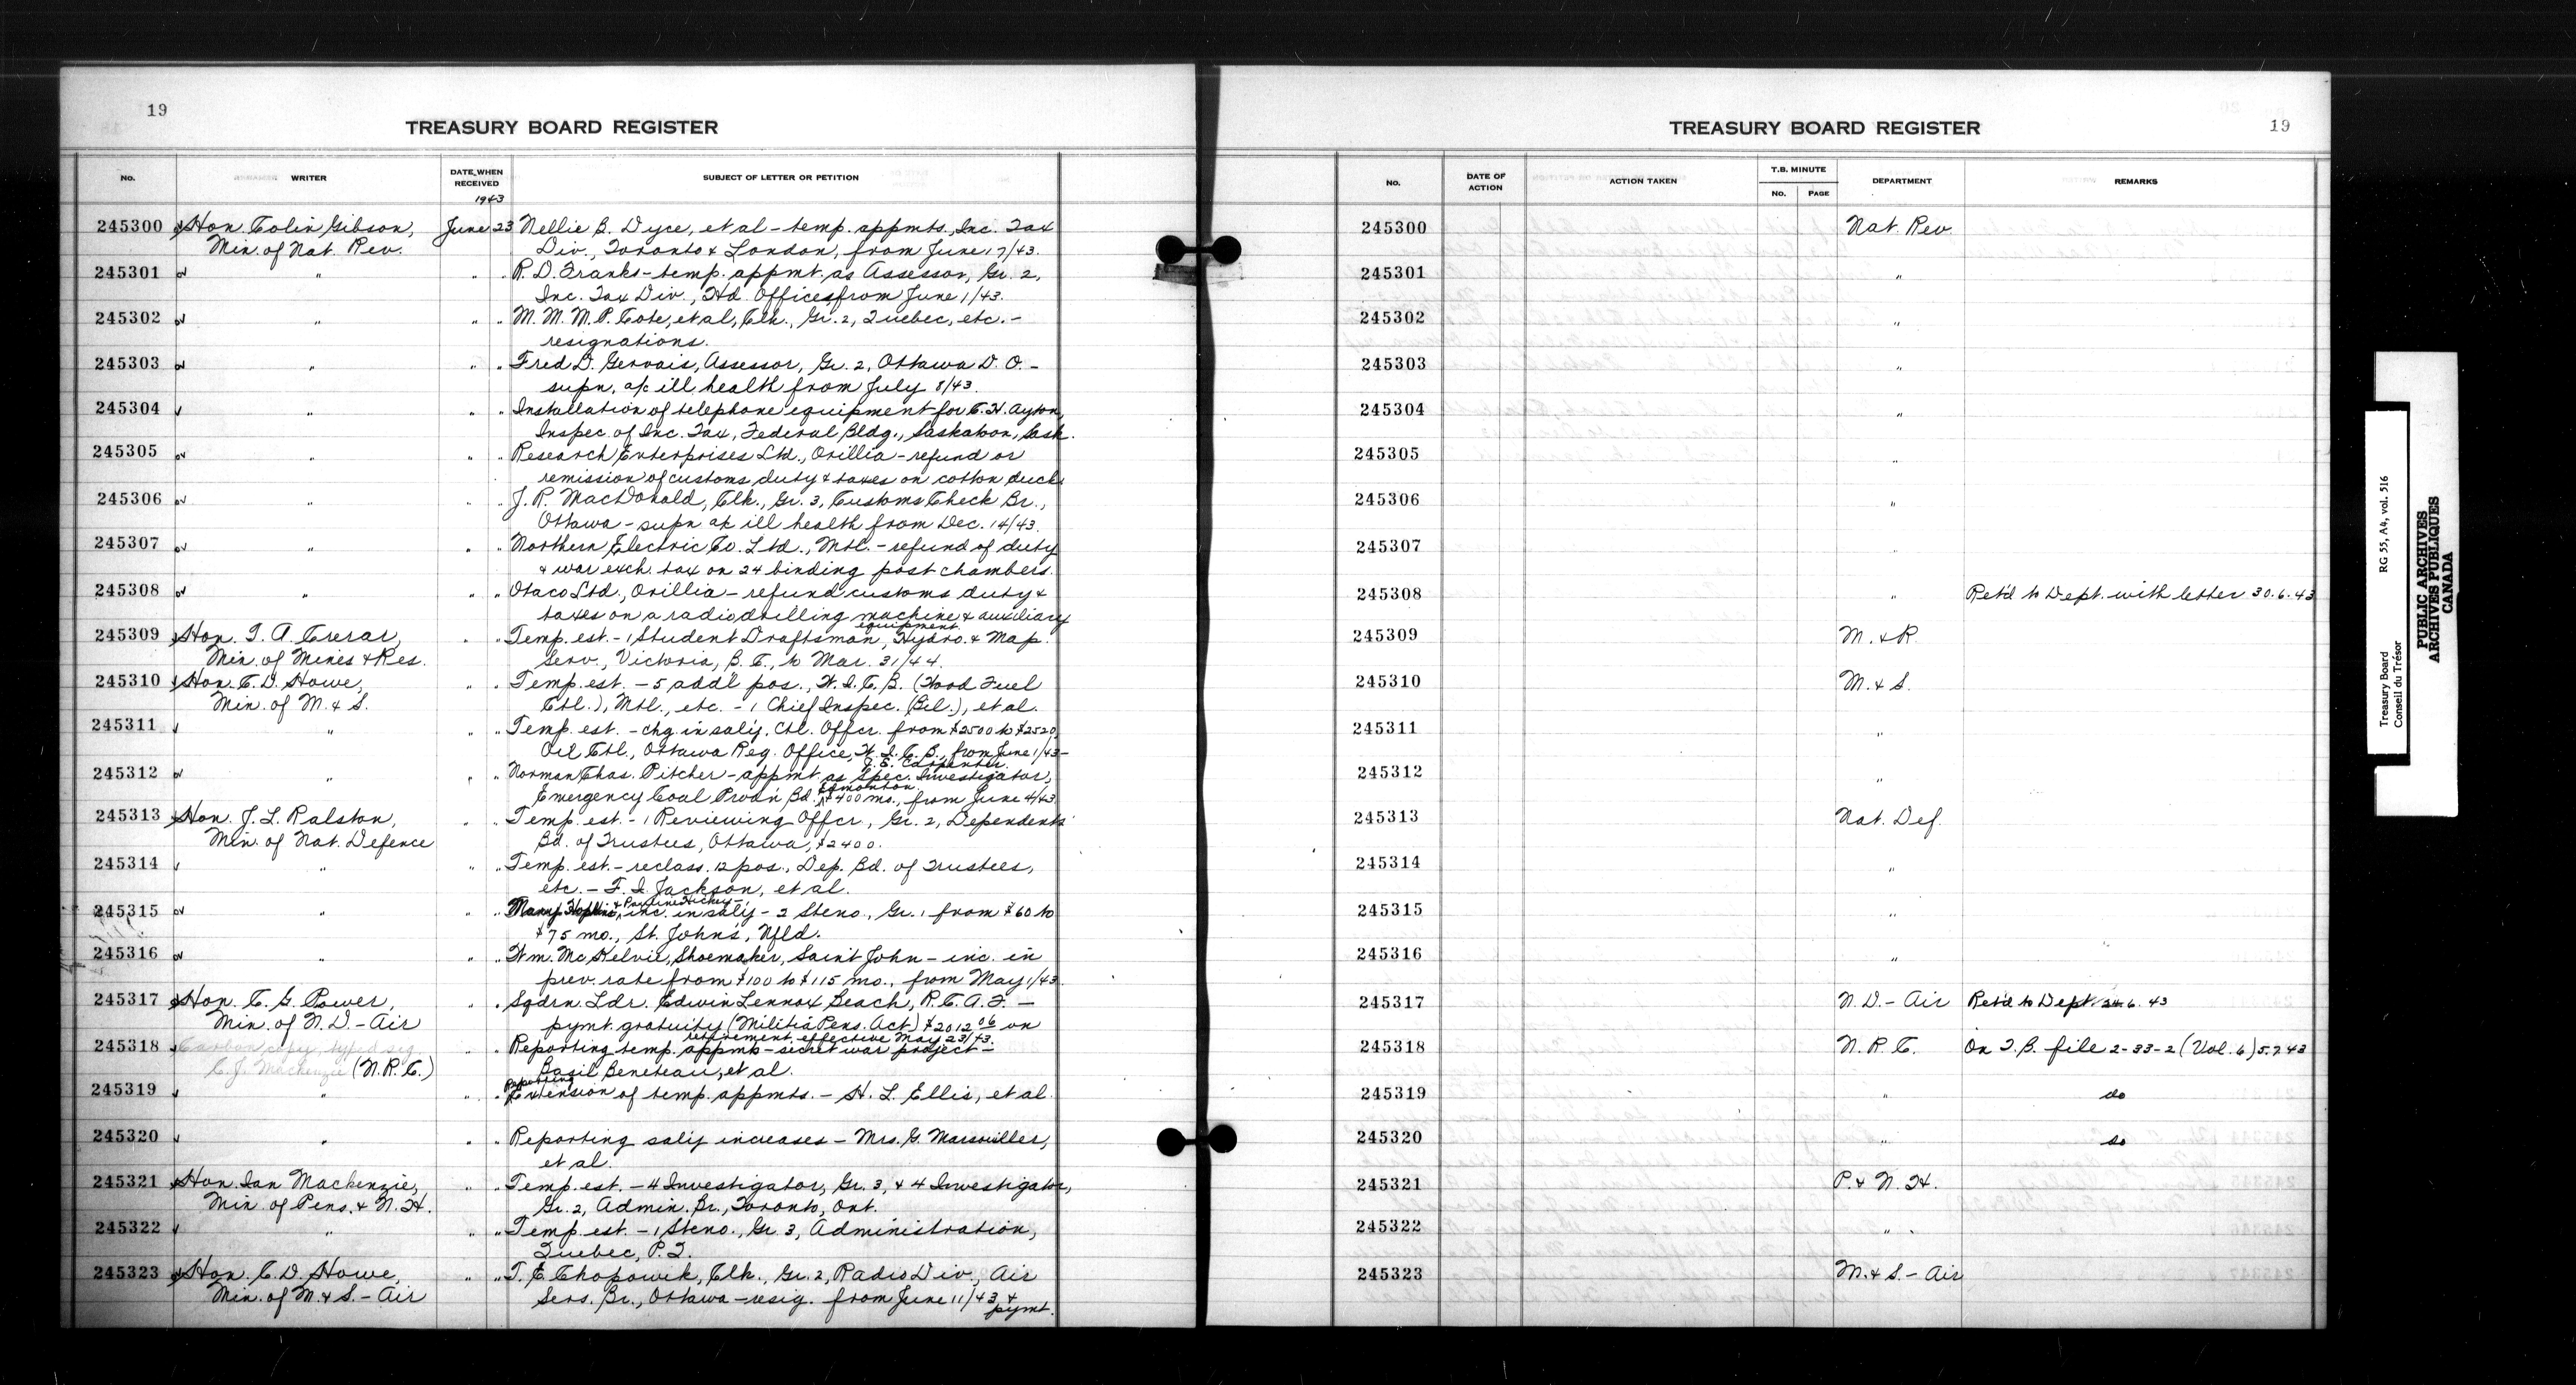 19
TREASURY BOARD REGISTER
No. WRITER DATE WHEN RECEIVED SUBJECT OF LETTER OR PETITION
1943
245300 Hon. Colin Gibson, June 23 Nellie B. Dyce, et al - temp. appmts., Inc. Tax
Min. of Nat. Rev. Div., Toronto & London, from June 17/43.
245301 " " " R. D. Franks - temp. appmt. as Assessor, Gr. 2,
Inc. Tax Div., Hd. Office, from June 1/43.
245302 " " " M. M. M. P. Cote, et al, Clk., Gr. 2, Quebec, etc. -
resignations.
245303 " " " Fred D. Gervais, Assessor, Gr. 2, Ottawa D. O. -
supn. a/c ill health from July 8/43.
245304 " " " Installation of telephone equipment for C. H. Ayton,
Inspec. of Inc. Tax, Federal Bldg., Saskatoon, Sask.
245305 " " " Research Enterprises Ltd., Orillia - refund or
remission of customs duty & taxes on cotton duck
245306 " " " J. R. MacDonald, Clk., Gr. 3, Customs Check Br.,
Ottawa - supn a/c ill health from Dec. 14/43.
245307 " " " Northern Electric Co. Ltd., Mtl. - refund of duty
& war exch. tax on 24 binding post chambers.
245308 " " " Otaco Ltd., Orillia - refund customs duty &
taxes on a radio drilling machine & auxiliary
equipment
245309 Hon. T. A. Crerar, " " Temp. est. - 1 Student Draftsman, Hydro. & Map.
Min. of Mines & Res. Serv., Victoria, B. C., to Mar. 31/44.
245310 Hon. C. D. Howe, " " Temp. est. - 5 add'l pos., W. I. C. B. (Wood Fuel
Min. of M. & S. Ctl.), Mtl., etc. - 1 Chief Inspec. (Bil.), et al.
245311 " " " Temp. est. - chg. in saly. Ctl. Offcr. from $2500 to $2520,
Oil Ctl., Ottawa Reg. Office, W. I. C. B., from June 1/43 -
J. E. Carpenter.
245312 " " " Norman Chas. Pitcher - appmt. as Spec. Investigator,
Edmonton
Emergency Coal Prod'n Bd. $400 mo., from June 4/43
245313 Hon. J. L. Ralston, " " Temp. est. - 1 Reviewing Offcr., Gr. 2, Dependents'
Min. of Nat. Defence Bd. of Trustees, Ottawa, $2400.
245314 " " " Temp. est. - reclass. 12 pos., Dep. Bd. of Trustees,
etc. - F. I. Jackson, et al.
& Pauline Hickey -
245315 " " " Mary Hopkins, inc. in saly - 2 Steno., Gr. 1 from $60 to
$75 mo., St. John's, Nfld.
245316 " " " Wm. McKelvie, Shoemaker, Saint John - inc. in
prev. rate from $100 to $115 mo., from May 1/43.
245317 Hon. C. G. Power, " " Sqdrn. Ldr. Edwin Lennox Beach, R. C. A. F. -
Min. of N. D. - Air pymt. gratuity (Militia Pens. Act) $2012.06 on
retirement effective May 23/43.
245318 Carbon copy, typed sig. " " Reporting temp. appmts - secret war project -
C. J. Mackenzie (N. R. C.) Basil Beneteau, et al.
Reporting
245319 " " " Extension of temp. appmts. - H. L. Ellis, et al.
245320 " " " Reporting saly increases - Mrs. G. Marswiller,
et al.
245321 Hon. Ian Mackenzie, " " Temp. est. - 4 Investigator, Gr. 3, & 4 Investigator,
Min. of Pens. & N. H. Gr. 2, Admin. Br., Toronto, Ont.
245322 " " " Temp. est. - 1 Steno., Gr. 3, Administration,
Quebec, P. Q.
245323 Hon. C. D. Howe, " " T. E. Chopowik, Clk., Gr. 2, Radio Div., Air
Min. of M. & S. - Air Servs. Br., Ottawa - resig. from June 11/43 &
pymt.
TREASURY BOARD REGISTER
19
No. DATE OF ACTION ACTION TAKEN T.B. MINUTE No. PAGE DEPARTMENT REMARKS
245300 Nat. Rev.
245301 "
245302 "
245303 "
245304 "
245305 "
245306 "
245307 "
245308 " Ret'd to Dept. with letter 30.6.43
245309 M. & R.
245310 M. & S.
245311 "
245312 "
245313 Nat. Def.
245314 "
245315 "
245316 "
245317 N. D. - Air Ret'd to Dept. 24.6.43
245318 N. R. C. On T. B. file 2-33-2 (Vol. 6) 5.7.43
245319 " do
245320 " do
245321 P. & N. H.
245322 "
245323 M. & S. - Air
Treasury Board RG 55, A4, vol. 516
Conseil du Trésor
PUBLIC ARCHIVES
ARCHIVES PUBLIQUES
CANADA